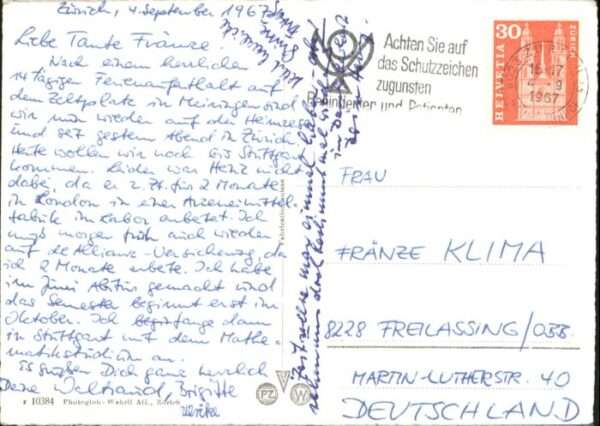 Zürich, 4. September 1967
Liebe Tante Fränze!
Nach einem herrlichen
14 tägigen Ferienaufenthalt auf
dem Zeltplatz in Meiringen sind
wir nun wieder auf der Heimreise
und seit gestern Abend in Zürich.
Heute wollen wir noch bis Stuttgart
kommen. Leider war Heinz nicht
dabei, da er z. Zt. für 2 Monate
in London in einer Arzneimittel-
fabrik im Labor arbeitet. Ich
muß morgen früh auch wieder
auf die Allianz-Versicherung, da
ich 2 Monate arbeite. Ich habe
im Juni Abitur gemacht und
das Semester beginnt erst im
Oktober. Ich fange dann
in Stuttgart mit dem Mathe-
matikstudium an.
Es grüßen Dich ganz herzlich
Deine Waltraud, Brigitte
Ulrike
F 10384 Photoglob-Wehrli AG., Zürich
PZ W
Achten Sie auf
das Schutzzeichen
zugunsten
Behinderter und Patienten
30
HELVETIA
ZÜRICH
1967
FRAU
FRÄNZE KLIMA
8228 FREILASSING/OBB
MARTIN-LUTHERSTR. 40
DEUTSCHLAND